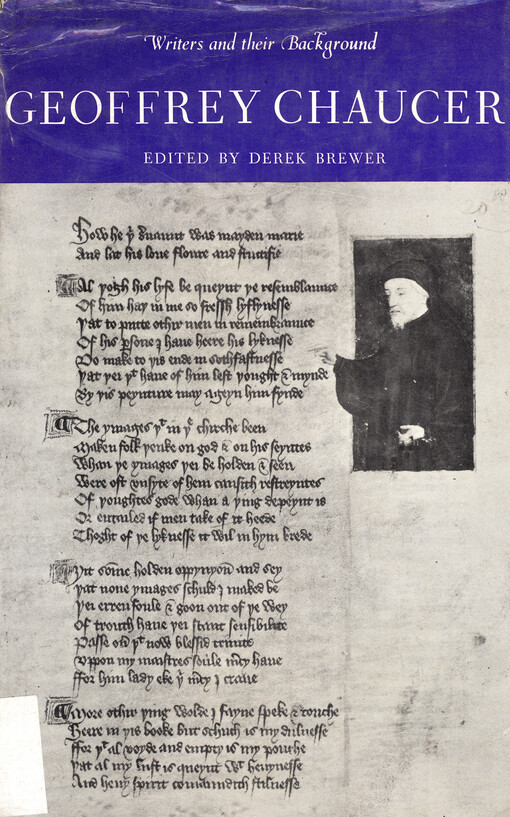 Writers and their Background
GEOFFREY CHAUCER
EDITED BY DEREK BREWER
How he þͥ seruaunt was mayden marie
And lat his loue floure and fructifie
Al þogh his lyfe be queynt þe resemblaunce
Of him haþ in me so fressh lyflynesse
Þat to putte othir men in remembraunce
Of his ꝑsone I haue heere his lyknesse
Do make to þis ende in sothfastnesse
Þat þei þͭ haue of him left þought & mynde
By þis peynture may ageyn him fynde
The ymages þͭ in þͤ chirche been
Maken folk þenke on god & on his seyntes
Whan þe ymages þei be holden & seen
Were oft vnsyte of hem causith restreyntes
Of þoughtes gode whan a þing depeynt is
Or entailed if men take of it heede
Thoght of þe lyknesse it wil in hym brede
Yit som̄e holden oppynyon̄ and sey
Þat none ymages schuld I maked be
Þei erren foule & goon out of þe wey
Of trouth haue þei scant sensibilite
Passe oū þͭ now blessid trinite
Vppon my maistres soule mꝰcy haue
ffor him lady eke þͥ mꝰcy I craue
More othir þing wolde I fayne speke & touche
Heere in þis booke but schuch is my dulnesse
ffor þͭ al voyde and empty is my pouche
Þat al my lust is queynt wͭ heuynesse
And heuy spirit comaundith stilnesse